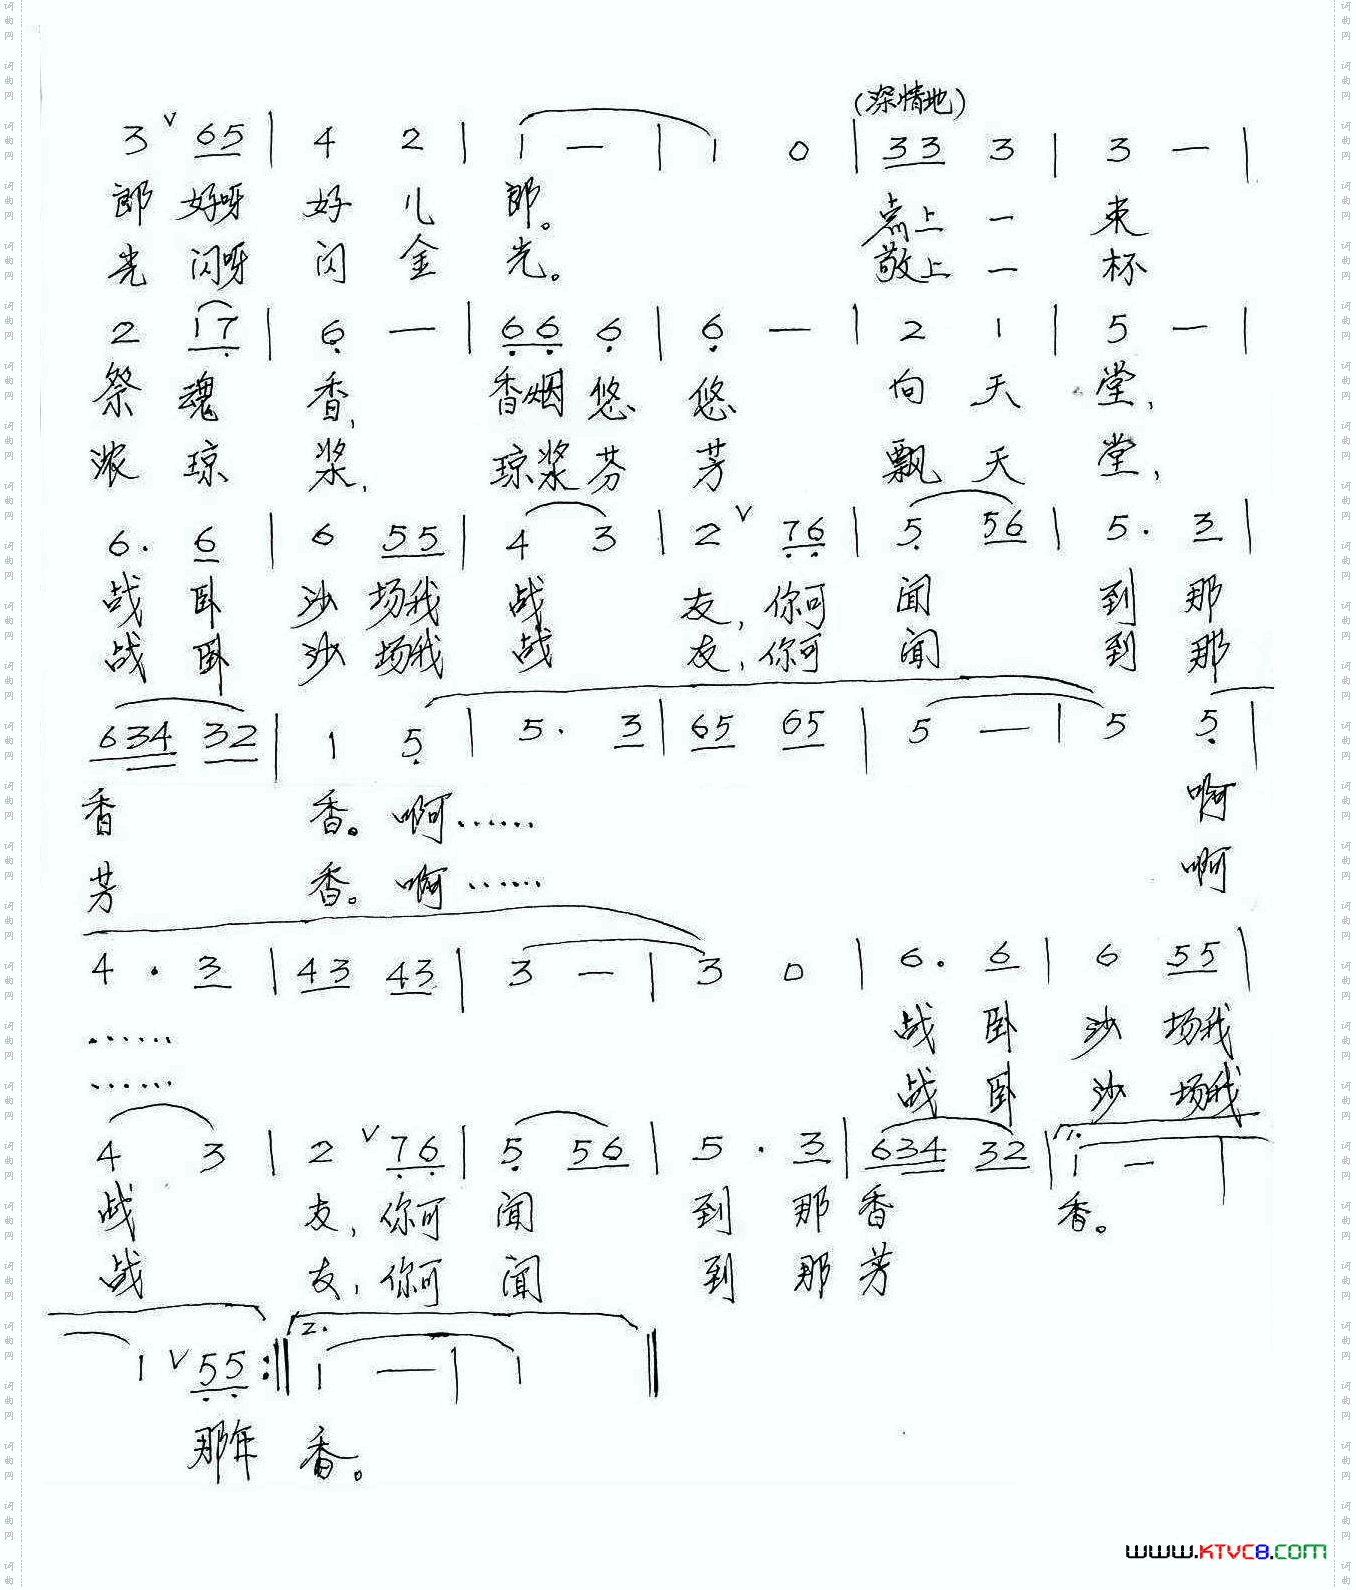 (深情地)
3 ∨ 65 | 4 2 | 1 — | 1 0 | 33 3 | 3 — |
郎 好呀 好 儿 郎。 点上 一 束
光 闪呀 闪 金 光。 敬上 一 杯
2 17 | 6 — | 66 6 | 6 — | 2 1 | 5 — |
祭 魂 香, 香烟 悠 悠 向 天 堂,
浓 琼 浆, 琼浆 芬 芳 飘 天 堂,
6. 6 | 6 55 | 4 3 | 2 ∨ 76 | 5 56 | 5. 3 |
战 卧 沙 场我 战 友, 你可 闻 到 那
战 卧 沙 场我 战 友, 你可 闻 到 那
634 32 | 1 5 | 5. 3 | 65 65 | 5 — | 5 5 |
香 香。 啊…… 啊
芳 香。 啊…… 啊
4 . 3 | 43 43 | 3 — | 3 0 | 6. 6 | 6 55 |
…… 战 卧 沙 场我
…… 战 卧 沙 场我
4 3 | 2 ∨ 76 | 5 56 | 5 . 3 | 634 32 | 1. 1 — |
战 友, 你可 闻 到 那 香 香。
战 友, 你可 闻 到 那 芳
1 ∨ 55 :‖ 2. 1 — | 1 ‖
那年 香。
www.KTVC8.com
词曲网